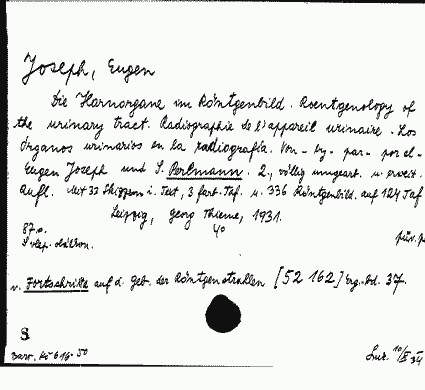 Joseph, Eugen
Die Harnorgane im Röntgenbild. Roentgenology of
the urinary tract. Radiographie de l'appareil urinaire. Los
Organos urinarios en la radiografía. Von- by- par- por el-
Eugen Joseph und S. Perlmann. 2., völlig umgearb. u. erweit.
Aufl. Mit 32 Skizzen i. Text, 3 farb. Taf. u. 336 Röntgenbild. auf 124 Taf
Leipzig, Georg Thieme, 1931.
87 s. 4°
v. Fortschritte auf d. Geb. der Röntgenstrahlen [52 162] Erg.-Bd. 37.
8